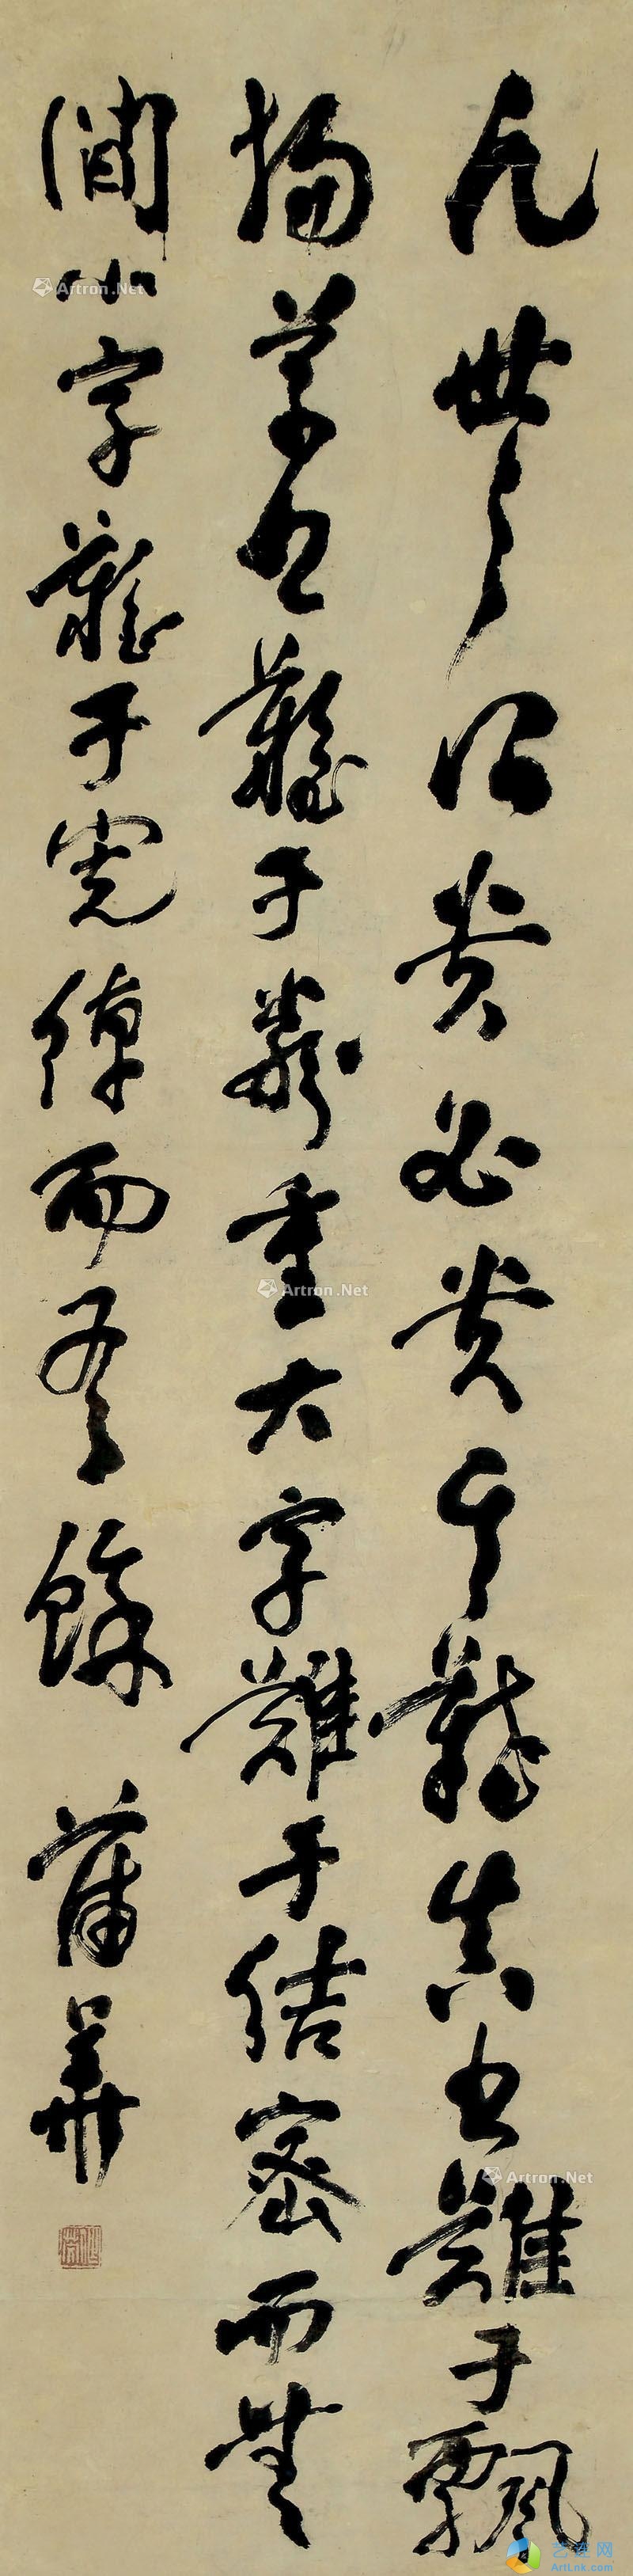 凡世之所贵必贵其难真书难于飘
扬草书难于严重大字难于结密而无
间小字难于宽绰而有余 蒲华
Artron.Net
Artron.Net
Artron.Net
艺连网
ArtLnk.com